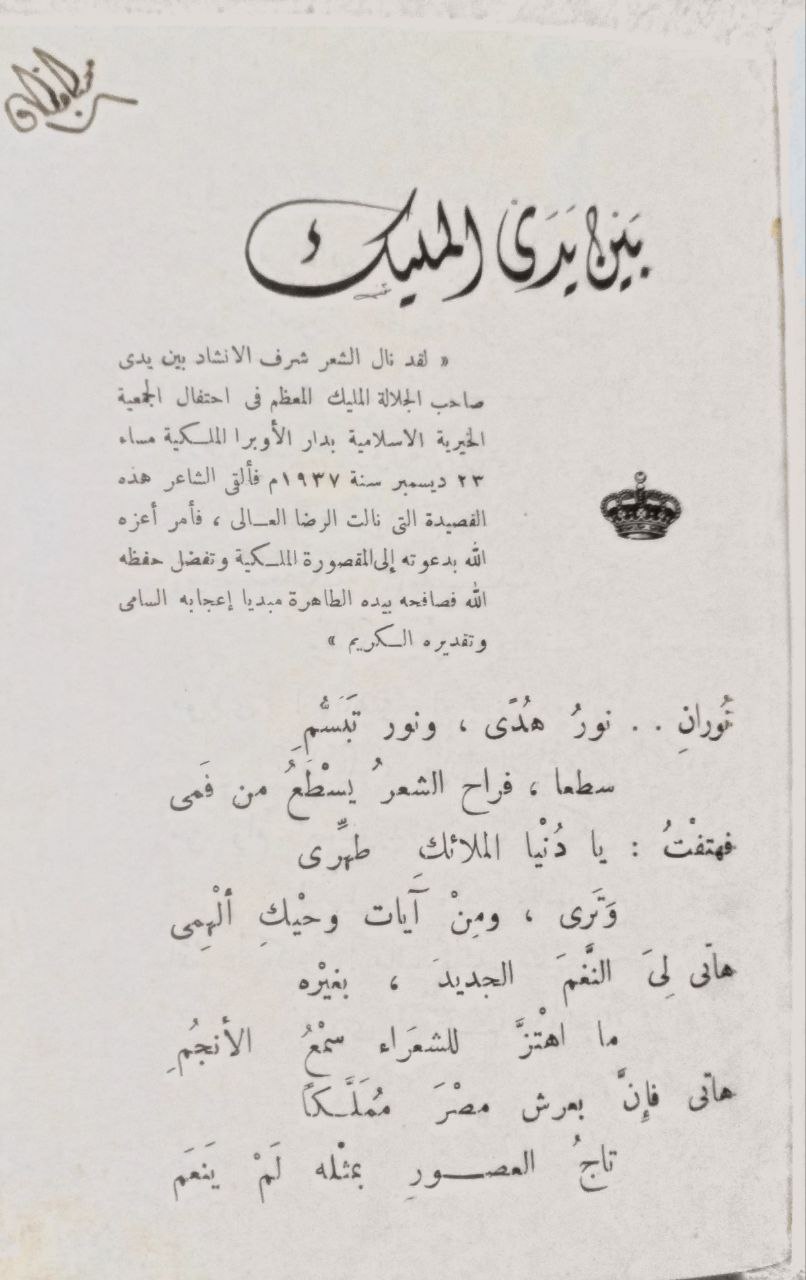 بَين يَدَى المليك
« لقد نال الشعر شرف الانشاد بين يدى
صاحب الجلالة المليك المعظم فى احتفال الجمعية
الخيرية الاسلامية بدار الأوبرا الملكية مساء
٢٣ ديسمبر سنة ١٩٣٧م فألقى الشاعر هذه
القصيدة التى نالت الرضا العالى ، فأمر أعزه
الله بدعوته إلى المقصورة الملكية وتفضل حفظه
الله فصافحه بيده الطاهرة مبديا إعجابه السامى
وتقديره الكريم »
نُورانِ . . نورُ هُدًى ، ونور تَبَسُّمِ
سطعا ، فراح الشعرُ يسْطَعُ من فَمى
فهتفْتُ : يا دُنْيا الملائك طهِّرى
وَتَرى ، ومِنْ آيات وحْيكِ ألْهِمى
هاتى لِىَ النَّغمَ الجديدَ ، بغيْره
ما اهْتزَّ للشعَراء سمْعُ الأنجُمِ
هاتى فإِنَّ بعرش مصْرَ مُمَلَّكاً
تاجُ العصورِ بمثْله لَمْ يَنعَم